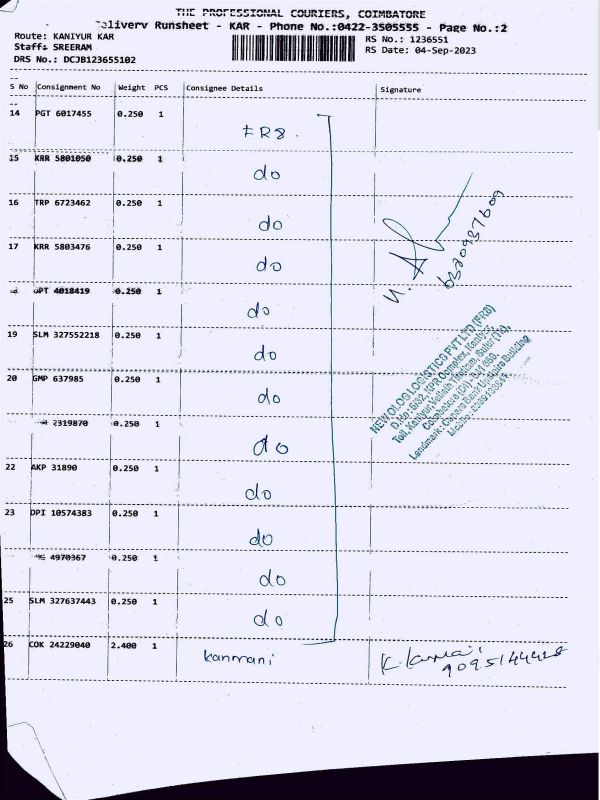 THE PROFESSIONAL COURIERS, COIMBATORE
Delivery Runsheet - KAR - Phone No.:0422-3505555 - Page No.:2
Route: KANIYUR KAR
RS No.: 1236551
Staff: SREERAM
RS Date: 04-Sep-2023
DRS No.: DCJB123655102
S No Consignment No Weight PCS Consignee Details Signature
14 PGT 6017455 0.250 1
FRS.
15 KRR 5801050 0.250 1
do
16 TRP 6723462 0.250 1
do
17 KRR 5803476 0.250 1
do
4018419 0.250 1
do
19 SLM 327552218 0.250 1
do
20 GMP 637985 0.250 1
do
2319870 0.250 1
do
22 AKP 31890 0.250 1
do
23 DPI 10574383 0.250 1
do
4970367 0.250 1
do
25 SLM 327637443 0.250 1
do
26 COK 24229040 2.400 1
kanmani
NEWOLOG LOGISTICS PVT LTD (FRS)
D.No: 5/32, KPR Complex, Kaniyur,
Coimbatore (Dt) - 641 659.
Landmark: Canara Bank Upstairs Building